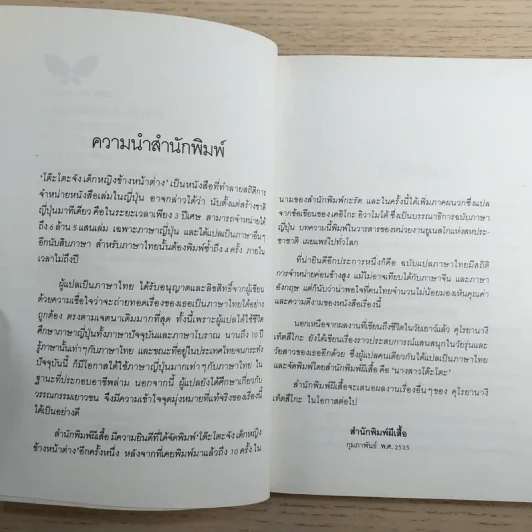 ความนำสำนักพิมพ์
'โต๊ะโตะจัง เด็กหญิงข้างหน้าต่าง' เป็นหนังสือที่ทำลายสถิติการ
จำหน่ายหนังสือเล่มในญี่ปุ่น อาจกล่าวได้ว่า นับตั้งแต่สร้างชาติ
ญี่ปุ่นมาทีเดียว คือในระยะเวลาเพียง 3 ปีเศษ สามารถจำหน่ายได้
ถึง 6 ล้าน 5 แสนเล่ม เฉพาะภาษาญี่ปุ่น และได้แปลเป็นภาษาอื่นๆ
อีกนับสิบภาษา สำหรับภาษาไทยนั้นต้องพิมพ์ซ้ำถึง 4 ครั้ง ภายใน
เวลาไม่ถึงปี
ผู้แปลเป็นภาษาไทย ได้รับอนุญาตและลิขสิทธิ์จากผู้เขียน
ด้วยความเชื่อว่าจะถ่ายทอดเรื่องของเธอเป็นภาษาไทยได้อย่าง
ถูกต้อง ตรงตามเจตนาเดิมมากที่สุด ทั้งนี้เพราะผู้แปลได้ใช้ชีวิต
ศึกษาภาษาญี่ปุ่นทั้งภาษาปัจจุบันและภาษาโบราณ นานถึง 10 ปี
รู้ภาษานั้นเท่าๆกับภาษาไทย และขณะที่อยู่ในประเทศไทยจนกระทั่ง
ปัจจุบันนี้ ก็มีโอกาสได้ใช้ภาษาญี่ปุ่นมากเท่าๆกับภาษาไทย ใน
ฐานะที่ประกอบอาชีพล่าม นอกจากนี้ ผู้แปลยังได้ศึกษาเกี่ยวกับ
วรรณกรรมเยาวชน จึงมีความเข้าใจจุดมุ่งหมายที่แท้จริงของเรื่องนี้
ได้เป็นอย่างดี
สำนักพิมพ์ผีเสื้อ มีความยินดีที่ได้จัดพิมพ์ 'โต๊ะโตะจัง เด็กหญิง
ข้างหน้าต่าง' อีกครั้งหนึ่ง หลังจากที่เคยพิมพ์มาแล้วถึง 10 ครั้ง ใน
นามของสำนักพิมพ์กะรัต และในครั้งนี้ได้เพิ่มภาคผนวกซึ่งแปล
จากข้อเขียนของ เคอิโกะ อิวาโมโต้ ซึ่งเป็นบรรณาธิการฉบับภาษา
ญี่ปุ่น บทความนี้พิมพ์ในวารสารของหน่วยงานยูเนสโกแห่งสหประ-
ชาชาติ เผยแพร่ไปทั่วโลก
ที่น่ายินดีอีกประการหนึ่งก็คือ ฉบับแปลภาษาไทยมีสถิติ
การจำหน่ายค่อนข้างสูง แม้ไม่อาจเทียบได้กับภาษาจีน และภาษา
อังกฤษ แต่ก็นับว่าน่าพอใจที่คนไทยจำนวนไม่น้อยมองเห็นคุณค่า
และความดีงามของหนังสือเรื่องนี้
นอกเหนือจากผลงานที่เขียนถึงชีวิตในวัยเยาว์แล้ว คุโรยานางิ
เท็ตสึโกะ ยังได้เขียนเรื่องราวประสบการณ์แสนสนุกในวัยรุ่นและ
วัยสาวของเธออีกด้วย ซึ่งผู้แปลคนเดียวกันได้แปลเป็นภาษาไทย
และจัดพิมพ์โดยสำนักพิมพ์ผีเสื้อ คือ "นางสาวโต๊ะโตะ"
สำนักพิมพ์ผีเสื้อจะเสนอผลงานเรื่องอื่นๆของ คุโรยานางิ
เท็ตสึโกะ ในโอกาสต่อไป
สำนักพิมพ์ผีเสื้อ
กุมภาพันธ์ พ.ศ. 2535